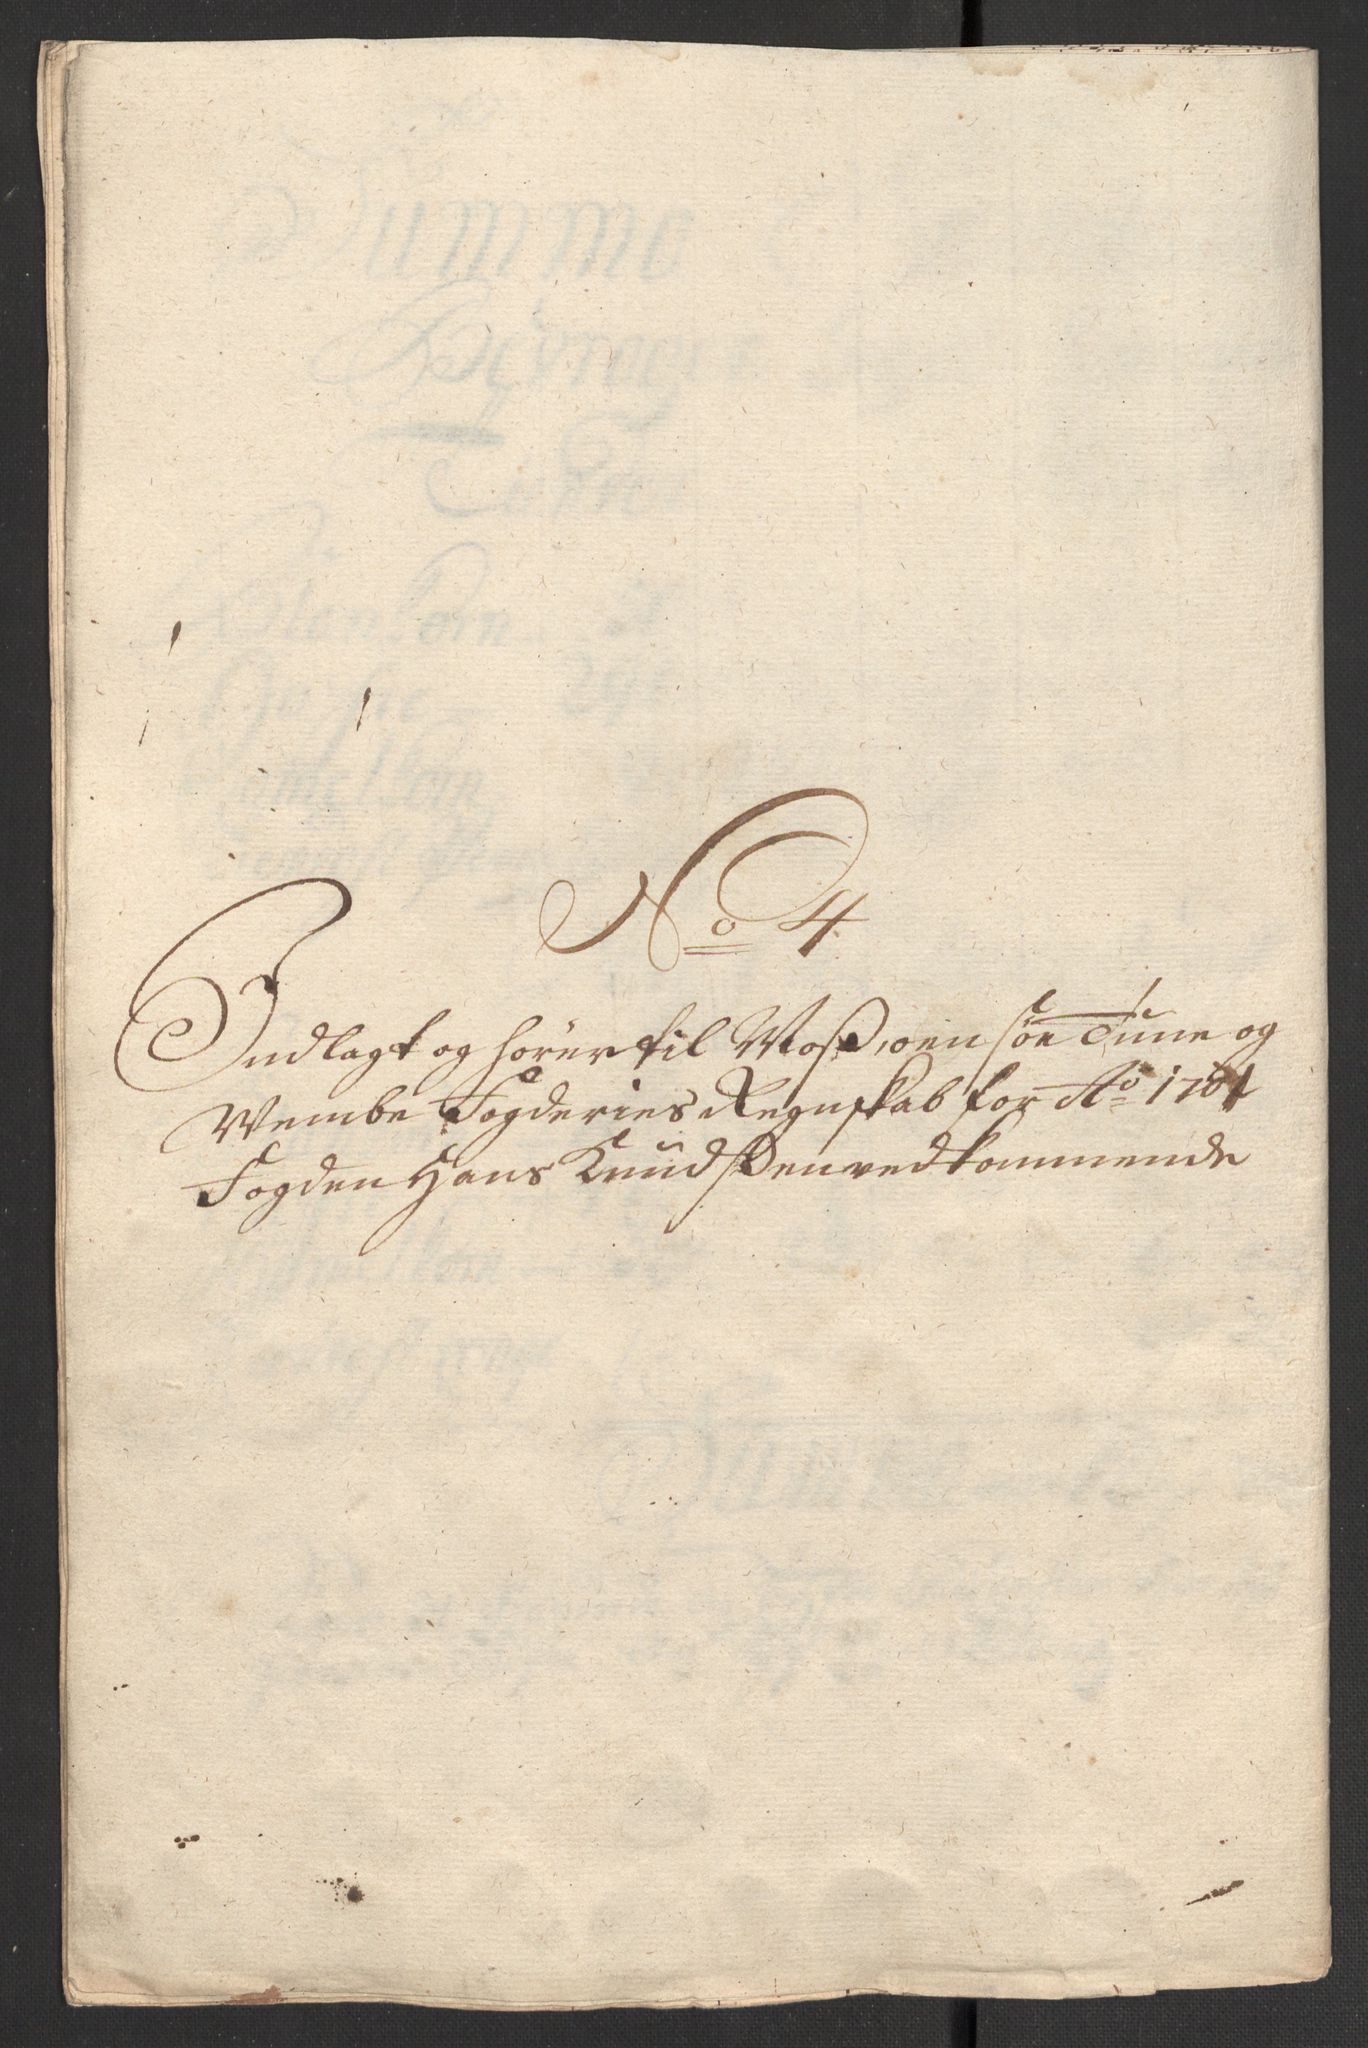 No 4
Indlagt og hører til Moss, Onsøe Tune og
Wembe Fogderies Regnskab for Ao 1701
Fogden Hans Knudssen vedkommende